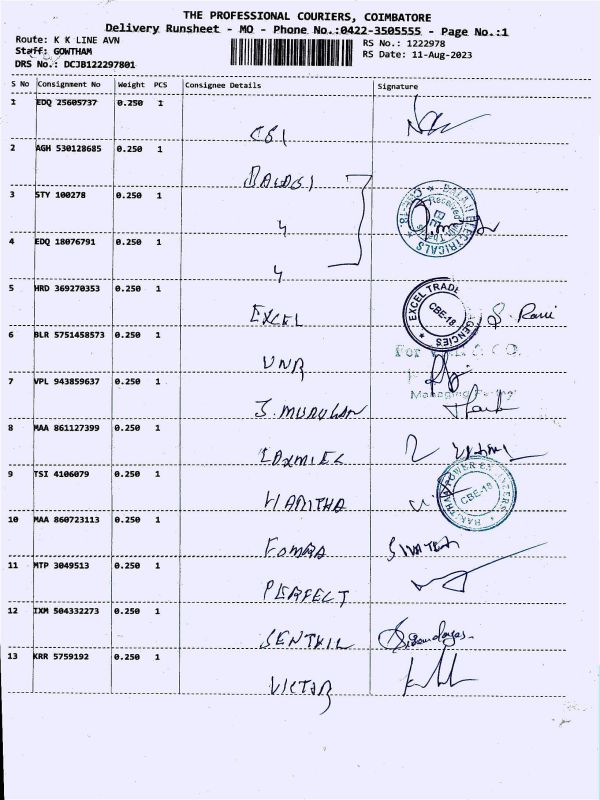 THE PROFESSIONAL COURIERS, COIMBATORE
Delivery Runsheet - MO - Phone No.:0422-3505555 - Page No.:1
Route: K K LINE AVN
RS No.: 1222978
Staff: GOWTHAM
RS Date: 11-Aug-2023
DRS No.: DCJB122297801
S No Consignment No Weight PCS Consignee Details Signature
1 EDQ 25605737 0.250 1
CBI
2 AGH 530128685 0.250 1
BALAGI
3 STY 100278 0.250 1
4 EDQ 18076791 0.250 1
BALAJI ELECTRICALS
CBE-18
Received with Thanks
5 HRD 369270353 0.250 1
EXCEL
EXCEL TRADE AGENCIES
CBE-18
S. Rani
6 BLR 5751458573 0.250 1
VNR
For
& CO.
7 VPL 943859637 0.250 1
Managing Partner
S. MURUGAN
8 MAA 861127399 0.250 1
LAXMIEL
9 TSI 4106079 0.250 1
HARITHA
POWER
CBE-18
10 MAA 860723113 0.250 1
FOMRA
11 MTP 3049513 0.250 1
PERFECT
12 IXM 504332273 0.250 1
SENTHIL
13 KRR 5759192 0.250 1
VICTOR